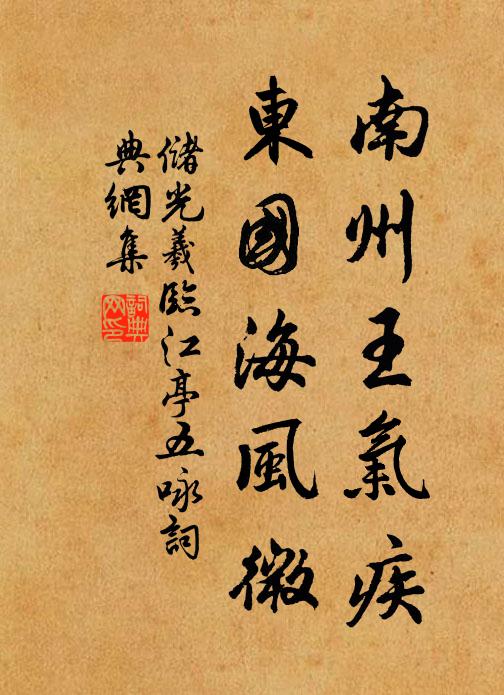 南州王氣疾
東國海風微
儲光羲臨江亭五咏詞
典網集
詞典網印